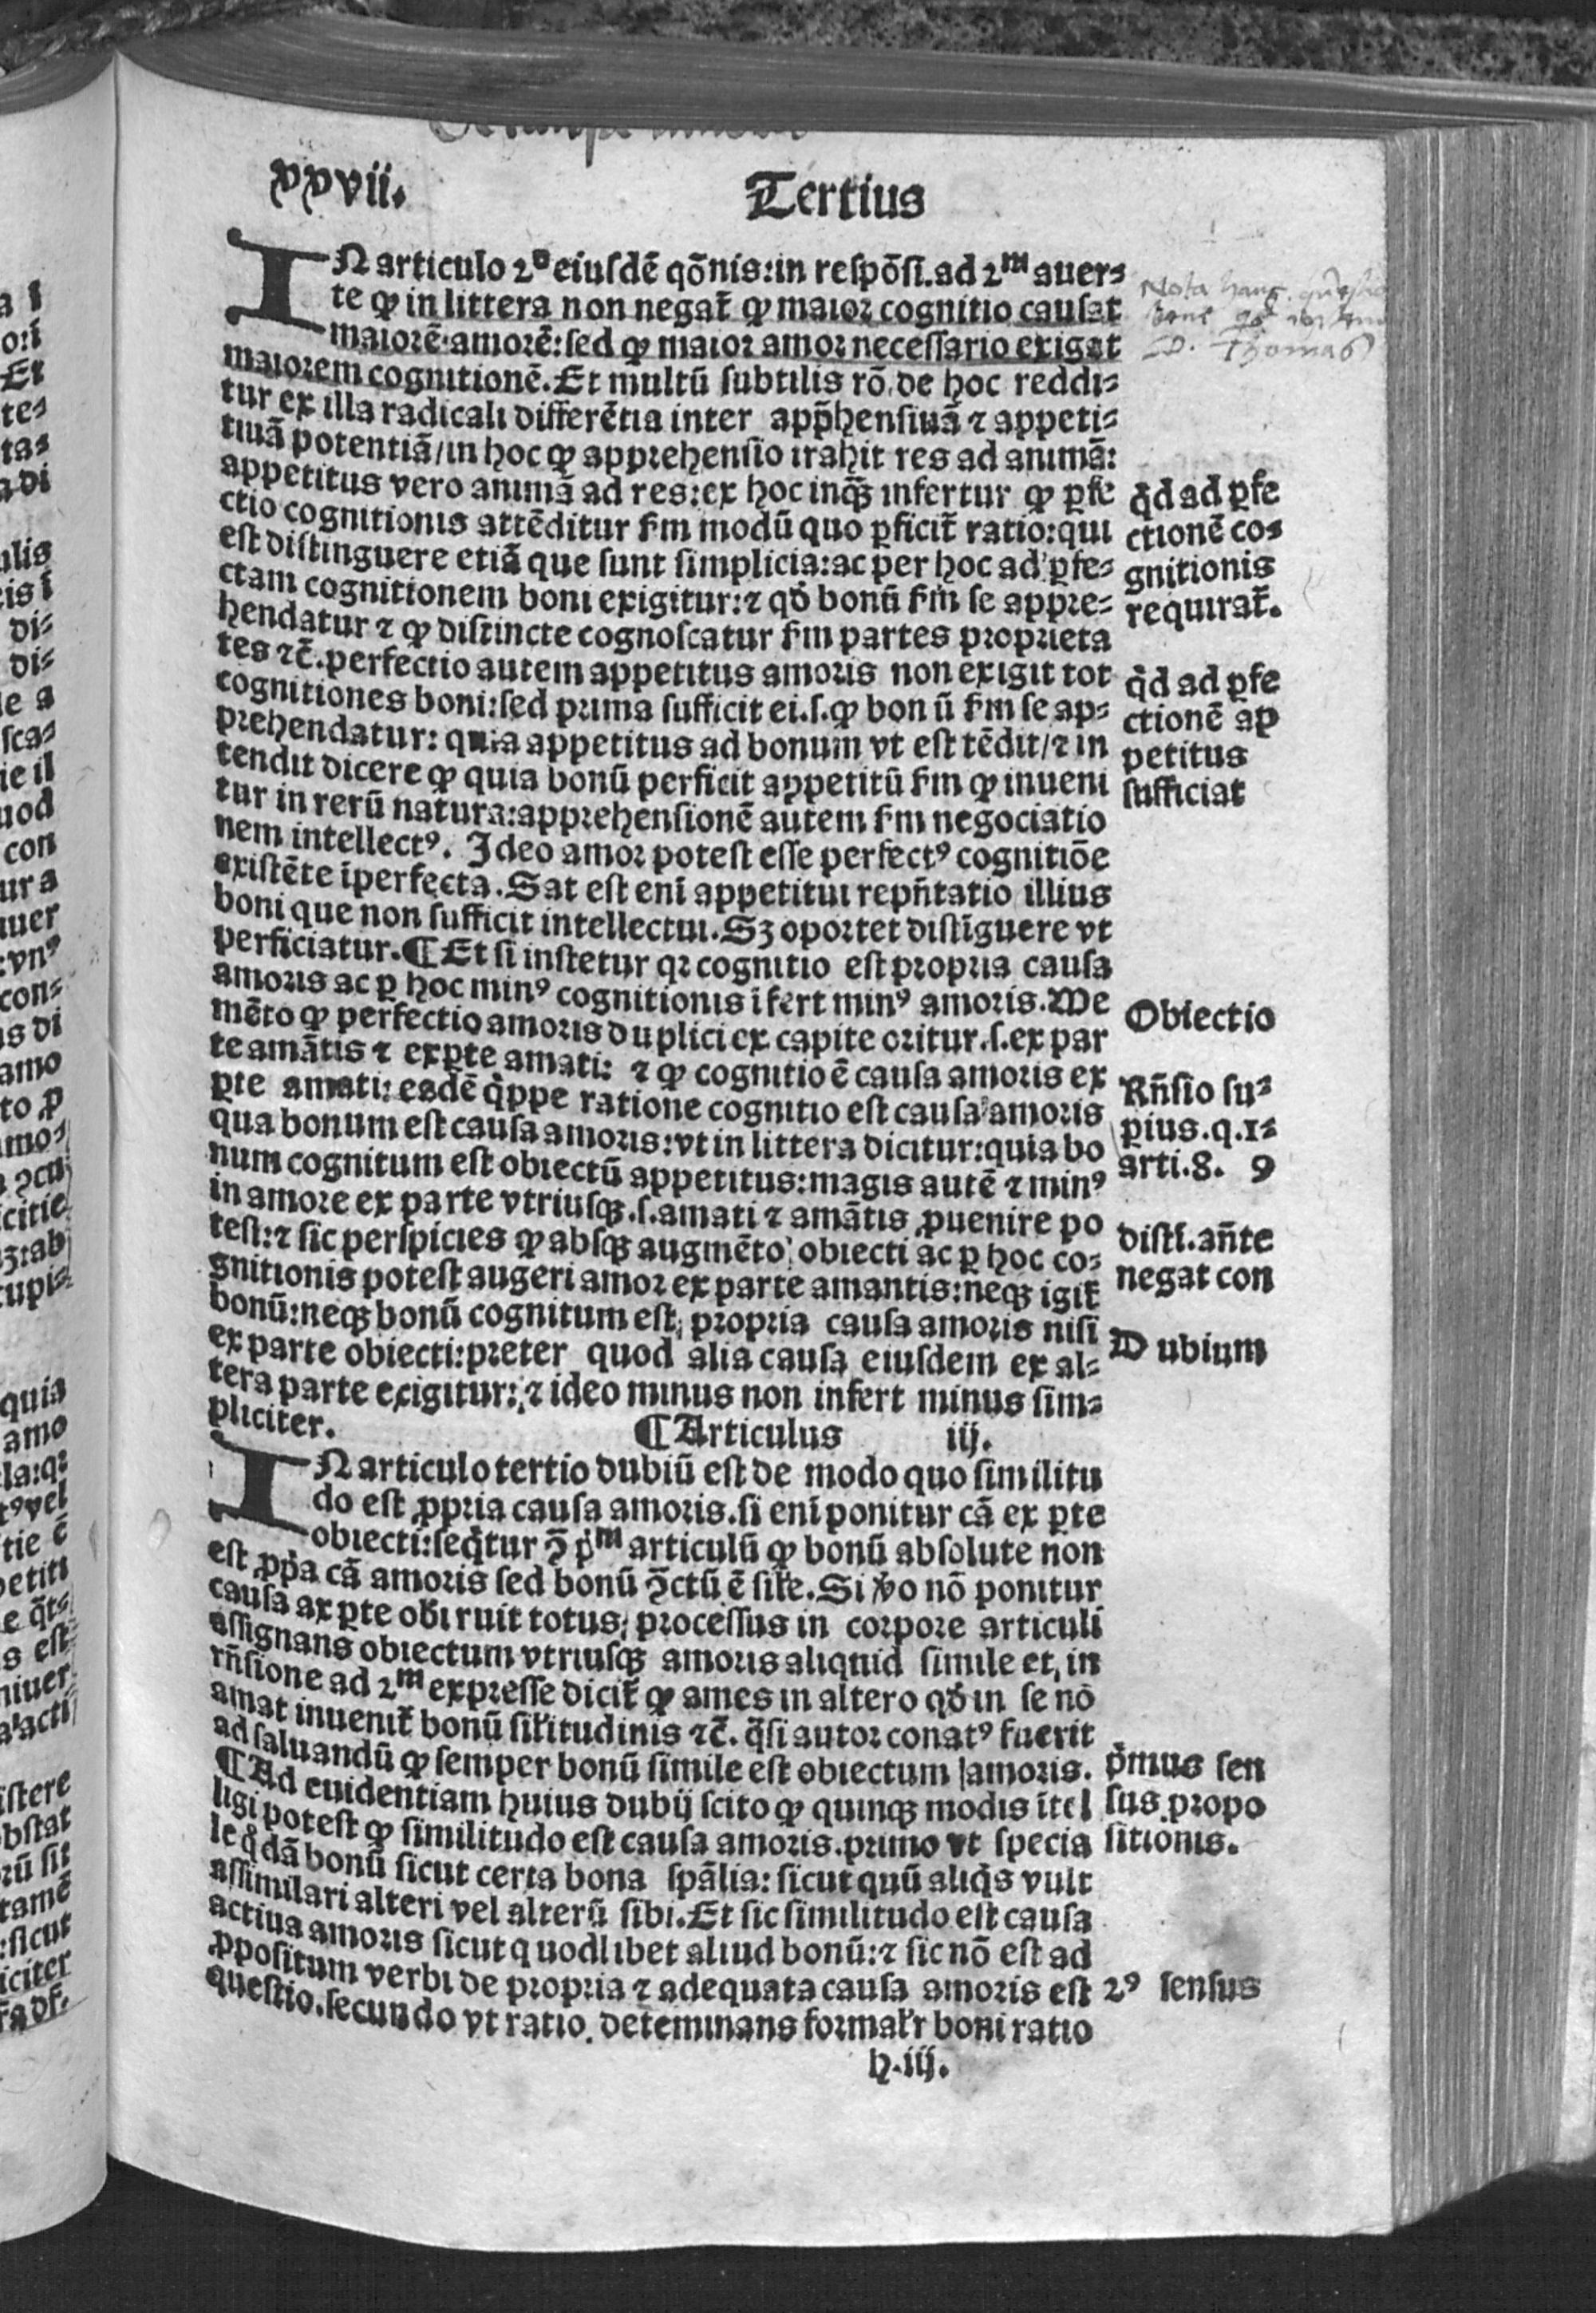 xxvii. Tertius
IN articulo 2º eiusdē qōnis: in respōsi. ad 2ᵐ auer⸗
te ꝙ in littera non negat̄ ꝙ maior cognitio causat
maiorē amorē: sed ꝙ maior amor necessario exigat
maiorem cognitionē. Et multū subtilis rō de hoc reddi⸗
tur ex illa radicali differētia inter app̄hensiuā ⁊ appeti⸗
tiuā potentiā/ in hoc ꝙ apprehensio trahit res ad animā:
appetitus vero animā ad res: ex hoc inqȝ infertur ꝙ ꝑfe
ctio cognitionis attēditur ẜm modū quo ꝑficit̄ ratio: qui
est distinguere etiā que sunt simplicia: ac per hoc ad ꝑfe⸗
ctam cognitionem boni exigitur: ⁊ qđ bonū ẜm se appre⸗
hendatur ⁊ ꝙ distincte cognoscatur ẜm partes proprieta
tes ⁊c̄. perfectio autem appetitus amoris non exigit tot
cognitiones boni: sed prima sufficit ei. s. ꝙ bon ū ẜm se ap⸗
prehendatur: quia appetitus ad bonum vt est tēdit/ ⁊ in
tendit dicere ꝙ quia bonū perficit appetitū ẜm ꝙ inueni
tur in rerū natura: apprehensionē autem ẜm negociatio
nem intellectꝰ. Ideo amor potest esse perfectꝰ cognitiōe
existēte īperfecta. Sat est enī appetitui repn̄tatio illius
boni que non sufficit intellectui. Sȝ oportet distīguere vt
perficiatur. ¶ Et si instetur qꝛ cognitio est propria causa
amoris ac ꝑ hoc minꝰ cognitionis īfert minꝰ amoris. Me
mēto ꝙ perfectio amoris duplici ex capite oritur. s. ex par
te amātis ⁊ ex ꝑte amati: ⁊ ꝙ cognitio ē causa amoris ex
ꝑte amati: eadē q̄ppe ratione cognitio est causa amoris
qua bonum est causa amoris: vt in littera dicitur: quia bo
num cognitum est obiectū appetitus: magis autē ⁊ minꝰ
in amore ex parte vtriusqȝ. s. amati ⁊ amātis ꝓuenire po
test: ⁊ sic perspicies ꝙ absqȝ augmēto obiecti ac ꝑ hoc co⸗
gnitionis potest augeri amor ex parte amantis: neqȝ igit̄
bonū: neqȝ bonū cognitum est propria causa amoris nisi
ex parte obiecti: preter quod alia causa eiusdem ex al⸗
tera parte exigitur: ⁊ ideo minus non infert minus sim⸗
pliciter. ¶ Articulus iij.
IN articulo tertio dubiū est de modo quo similitu
do est ꝓpria causa amoris. si enī ponitur cā ex ꝑte
obiecti: seq̄tur ꝯ̄ pᵐ articulū ꝙ bonū absolute non
est ꝓpa cā amoris sed bonū ꝯ̄ctū ē sil̄e. Si v̄o nō ponitur
causa ax ꝑte obi ruit totus processus in corpore articuli
assignans obiectum vtriusqȝ amoris aliquid simile et in
rn̄sione ad 2ᵐ expresse dicit̄ ꝙ ames in altero qđ in se nō
amat inuenit̄ bonū sil̄itudinis ⁊c̄. q̄si autor conatꝰ fuerit
ad saluandū ꝙ semper bonū simile est obiectum amoris.
¶ Ad euidentiam huius dubij scito ꝙ quinqȝ modis ītel
ligi potest ꝙ similitudo est causa amoris. primo vt specia
le q̄dā bonū sicut certa bona sp̄alia: sicut quū aliq̄s vult
assimilari alteri vel alterū sibi. Et sic similitudo est causa
actiua amoris sicut quodlibet aliud bonū: ⁊ sic nō est ad
ꝓpositum verbi de propria ⁊ adequata causa amoris est
questio. secundo vt ratio deteminans formal̄r boni ratio
h. iij.
Nota hanc
D. Thomas
q̄d ad ꝑfe
ctionē co⸗
gnitionis
requirat̄.
q̄d ad ꝑfe
ctionē ap
petitus
sufficiat
Obiectio
Rn̄sio su⸗
ꝑius. q. 1⸗
arti. 8. 9
distī. an̄te
negat con
Dubium
p̄mus sen
sus propo
sitionis.
2ꝰ sensus